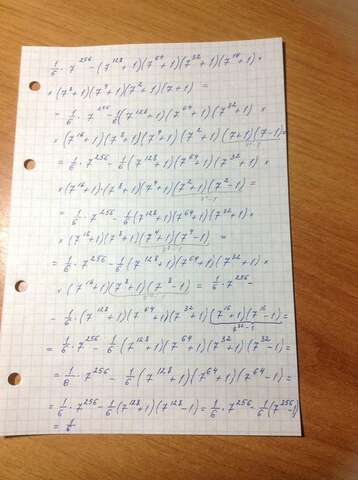 1/6 · 7^256 − (7^128+1)(7^64+1)(7^32+1)(7^16+1)×
×(7^8+1)(7^4+1)(7^2+1)(7+1) =
= 1/6 · 7^256 − 1/6(7^128+1)(7^64+1)(7^32+1)×
×(7^16+1)(7^8+1)(7^4+1)(7^2+1)(7+1)(7−1)=
7^2−1
= 1/6 · 7^256 − 1/6(7^128+1)(7^64+1)(7^32+1)×
×(7^16+1)(7^8+1)(7^4+1)(7^2+1)(7^2−1)=
7^4−1
= 1/6 · 7^256 − 1/6(7^128+1)(7^64+1)(7^32+1)×
×(7^16+1)(7^8+1)(7^4+1)(7^4−1)=
7^8−1
= 1/6 · 7^256 − 1/6(7^128+1)(7^64+1)(7^32+1)×
×(7^16+1)(7^8+1)(7^8−1) = 1/6 · 7^256 −
− 1/6·(7^128+1)(7^64+1)(7^32+1)(7^16+1)(7^16−1)=
7^32−1
= 1/6 · 7^256 − 1/6(7^128+1)(7^64+1)(7^32+1)(7^32−1)=
= 1/6 · 7^256 − 1/6(7^128+1)(7^64+1)(7^64−1)=
= 1/6 · 7^256 − 1/6(7^128+1)(7^128−1)= 1/6 · 7^256 − 1/6(7^256−1)
= 1/6